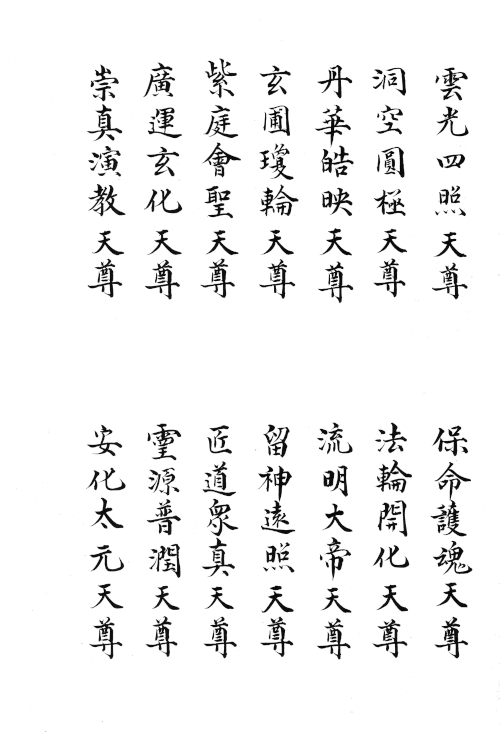 雲光四照天尊
洞空圓極天尊
丹華皓映天尊
玄圃瓊輪天尊
紫庭會聖天尊
廣運玄化天尊
崇真演教天尊
保命護魂天尊
法輪開化天尊
流明大帝天尊
留神遠照天尊
匠道眾真天尊
靈源普潤天尊
安化太元天尊